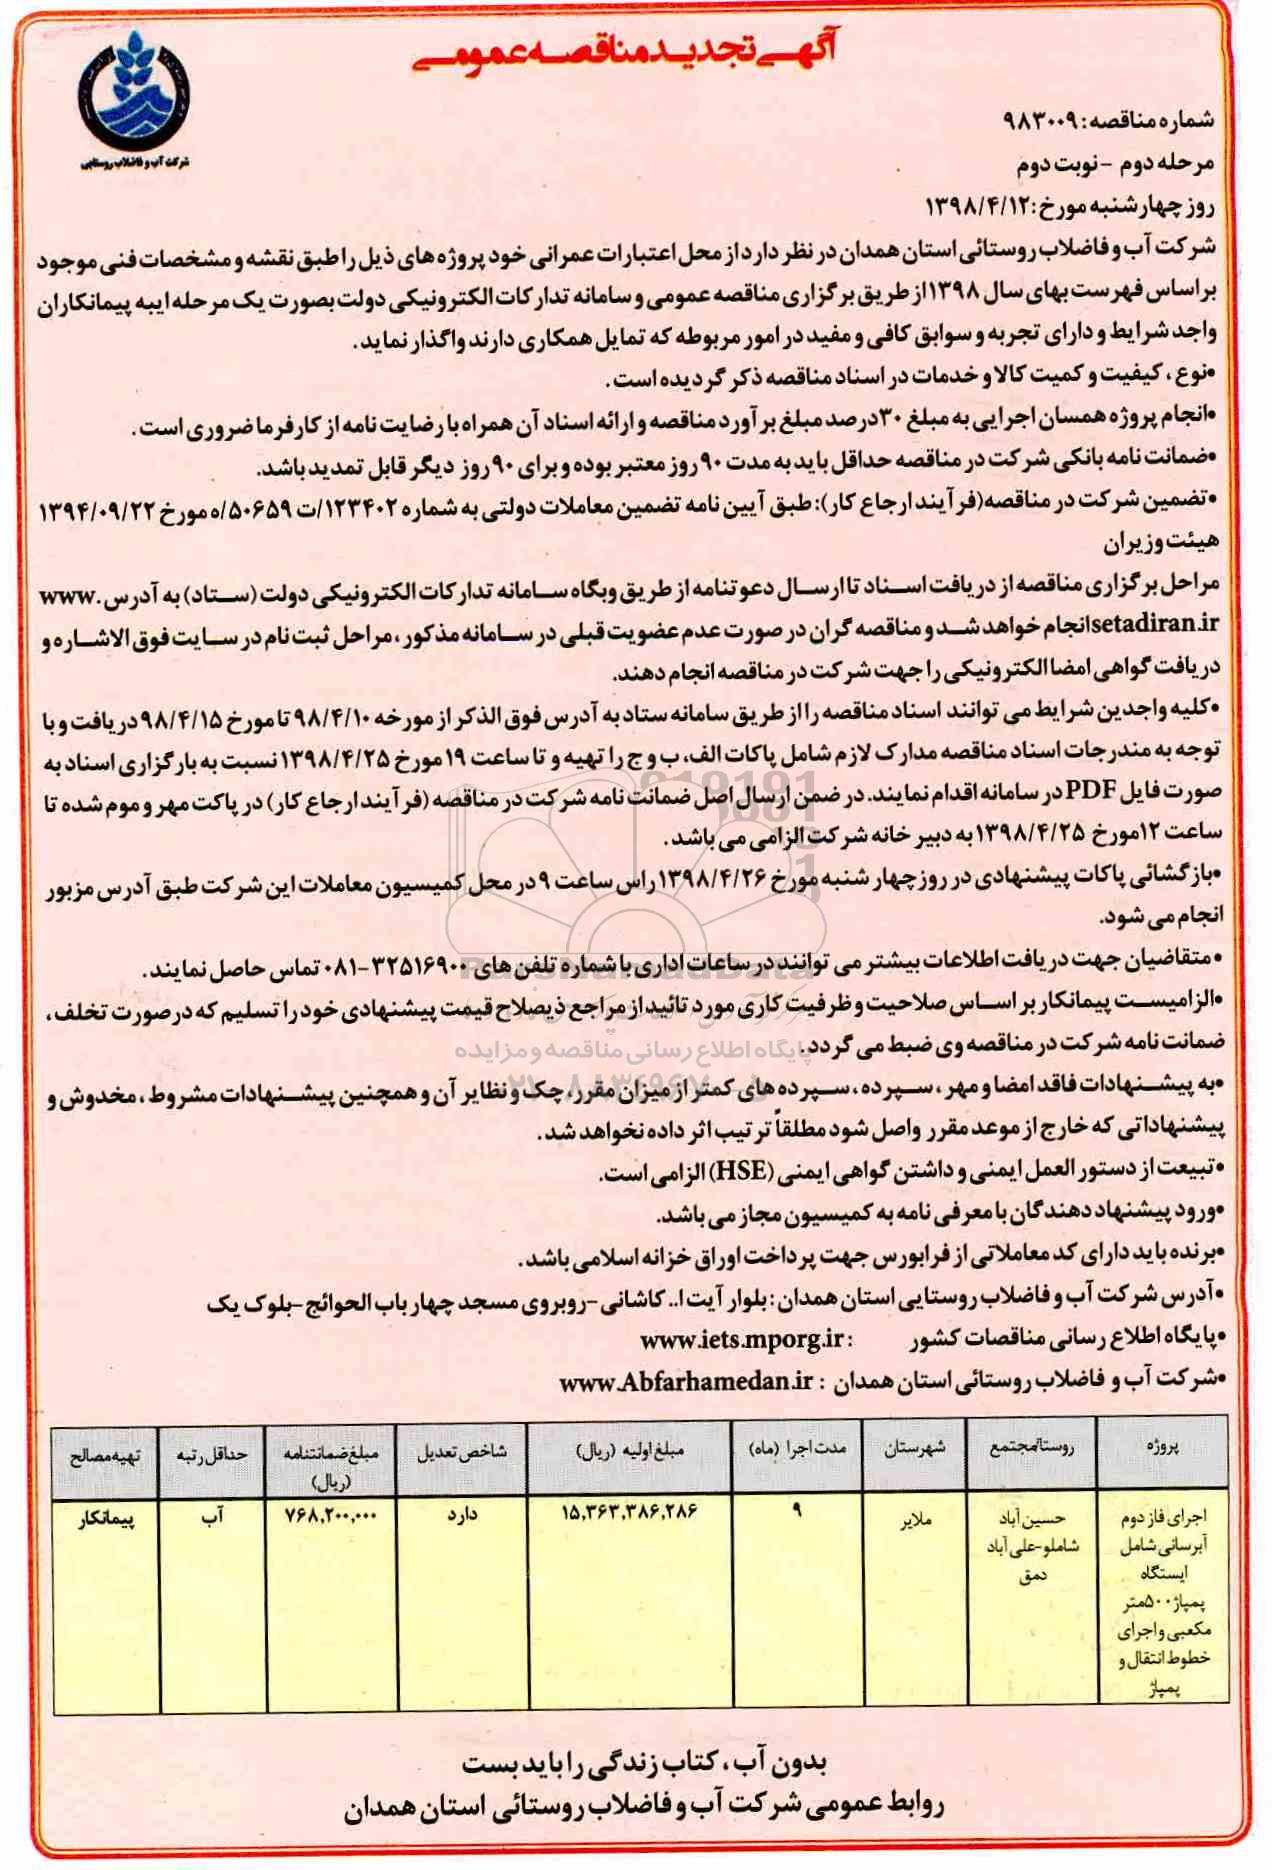 آگهی تجدید مناقصه عمومی
شرکت آب و فاضلاب روستایی
شماره مناقصه: ۹۸۳۰۰۹
مرحله دوم - نوبت دوم
روز چهارشنبه مورخ: ۱۳۹۸/۴/۱۲
شرکت آب و فاضلاب روستائی استان همدان در نظر دارد از محل اعتبارات عمرانی خود پروژه های ذیل را طبق نقشه و مشخصات فنی موجود
براساس فهرست بهای سال ۱۳۹۸ از طریق برگزاری مناقصه عمومی و سامانه تدارکات الکترونیکی دولت بصورت یک مرحله ایبه پیمانکاران
واجد شرایط و دارای تجربه و سوابق کافی و مفید در امور مربوطه که تمایل همکاری دارند واگذار نماید.
•نوع، کیفیت و کمیت کالا و خدمات در اسناد مناقصه ذکر گردیده است.
•انجام پروژه همسان اجرایی به مبلغ ۳۰ درصد مبلغ برآورد مناقصه و ارائه اسناد آن همراه با رضایت نامه از کارفرما ضروری است.
•ضمانت نامه بانکی شرکت در مناقصه حداقل باید به مدت ۹۰ روز معتبر بوده و برای ۹۰ روز دیگر قابل تمدید باشد.
•تضمین شرکت در مناقصه(فرآیند ارجاع کار): طبق آیین نامه تضمین معاملات دولتی به شماره ۱۲۳۴۰۲/ت ۵۰۶۵۹/ه مورخ ۱۳۹۴/۰۹/۲۲
هیئت وزیران
مراحل برگزاری مناقصه از دریافت اسناد تا ارسال دعوتنامه از طریق وبگاه سامانه تدارکات الکترونیکی دولت (ستاد) به آدرس www.
setadiran.ir انجام خواهد شد و مناقصه گران در صورت عدم عضویت قبلی در سامانه مذکور، مراحل ثبت نام در سایت فوق الاشاره و
دریافت گواهی امضا الکترونیکی را جهت شرکت در مناقصه انجام دهند.
•کلیه واجدین شرایط می توانند اسناد مناقصه را از طریق سامانه ستاد به آدرس فوق الذکر از مورخه ۹۸/۴/۱۰ تا مورخ ۹۸/۴/۱۵ دریافت و با
توجه به مندرجات اسناد مناقصه مدارک لازم شامل پاکات الف، ب و ج را تهیه و تا ساعت ۱۹ مورخ ۱۳۹۸/۴/۲۵ نسبت به بارگزاری اسناد به
صورت فایل PDF در سامانه اقدام نمایند. در ضمن ارسال اصل ضمانت نامه شرکت در مناقصه (فرآیند ارجاع کار) در پاکت مهر و موم شده تا
ساعت ۱۲ مورخ ۱۳۹۸/۴/۲۵ به دبیر خانه شرکت الزامی می باشد.
•بازگشائی پاکات پیشنهادی در روز چهار شنبه مورخ ۱۳۹۸/۴/۲۶ راس ساعت ۹ در محل کمیسیون معاملات این شرکت طبق آدرس مزبور
انجام می شود.
•متقاضیان جهت دریافت اطلاعات بیشتر می توانند در ساعات اداری با شماره تلفن های ۳۲۵۱۶۹۰۰-۰۸۱ تماس حاصل نمایند.
•الزامیست پیمانکار بر اساس صلاحیت و ظرفیت کاری مورد تائید از مراجع ذیصلاح قیمت پیشنهادی خود را تسلیم که در صورت تخلف،
ضمانت نامه شرکت در مناقصه وی ضبط می گردد.
پایگاه اطلاع رسانی مناقصه و مزایده
•به پیشنهادات فاقد امضا و مهر، سپرده، سپرده های کمتر از میزان مقرر، چک و نظایر آن و همچنین پیشنهادات مشروط، مخدوش و
پیشنهاداتی که خارج از موعد مقرر واصل شود مطلقاً ترتیب اثر داده نخواهد شد.
•تبیعت از دستور العمل ایمنی و داشتن گواهی ایمنی (HSE) الزامی است.
•ورود پیشنهاد دهندگان با معرفی نامه به کمیسیون مجاز می باشد.
•برنده باید دارای کد معاملاتی از فرابورس جهت پرداخت اوراق خزانه اسلامی باشد.
•آدرس شرکت آب و فاضلاب روستایی استان همدان: بلوار آیت ا.. کاشانی-روبروی مسجد چهار باب الحوائج-بلوک یک
•پایگاه اطلاع رسانی مناقصات کشور : www.iets.mporg.ir
•شرکت آب و فاضلاب روستائی استان همدان : www.Abfarhamedan.ir
پروژه روستا/مجتمع شهرستان مدت اجرا (ماه) مبلغ اولیه (ریال) شاخص تعدیل مبلغ ضمانتنامه (ریال) حداقل رتبه تهیه مصالح
اجرای فاز دوم آبرسانی شامل ایستگاه پمپاژ ۵۰۰ متر مکعبی و اجرای خطوط انتقال و پمپاژ
حسین آباد شاملو-علی آباد دمق
ملایر
۹
۱۵,۳۶۳,۳۸۶,۲۸۶
دارد
۷۶۸,۲۰۰,۰۰۰
آب
پیمانکار
بدون آب، کتاب زندگی را باید بست
روابط عمومی شرکت آب و فاضلاب روستائی استان همدان